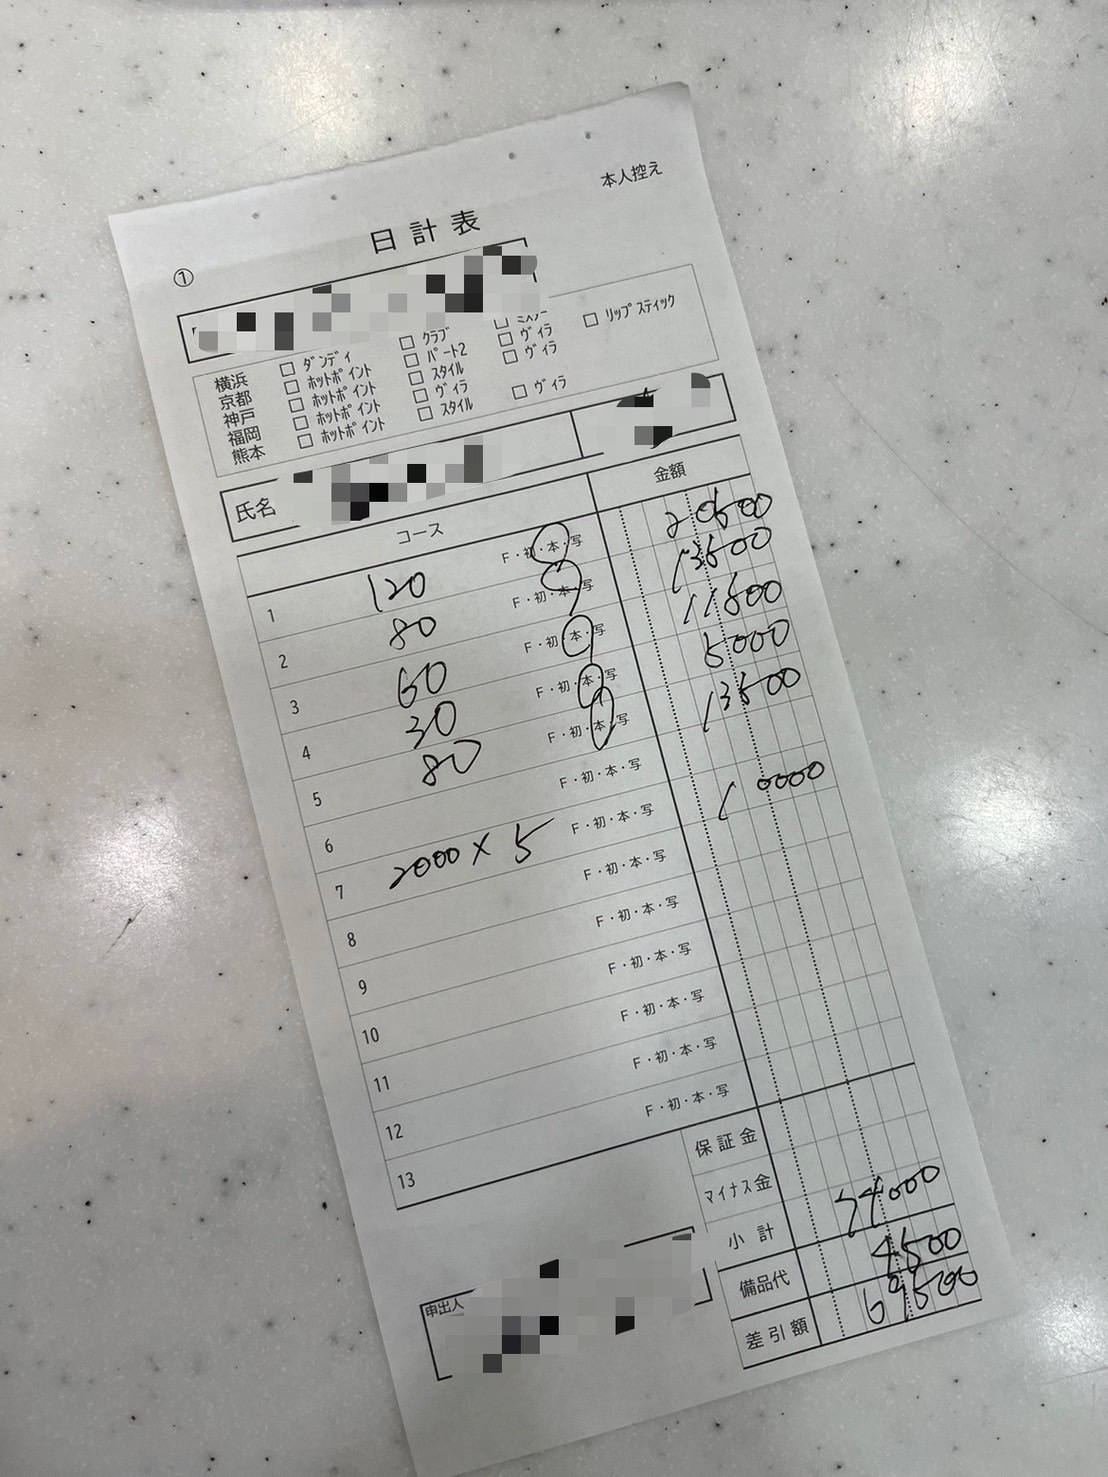 本人控え
日計表
①
横浜 □ダンディ □クラブ □リップスティック
京都 □ホットポイント □パート2 □ヴィラ
神戸 □ホットポイント □スタイル □ヴィラ
福岡 □ホットポイント □ヴィラ
熊本 □ホットポイント □スタイル □ヴィラ
氏名
コース 金額
1 120 F・初・本・写 20500
2 80 F・初・本・写 13500
3 60 F・初・本・写 11500
4 30 F・初・本・写 5000
5 80 F・初・本・写 13500
6 F・初・本・写
7 2000×5 F・初・本・写 10000
8 F・初・本・写
9 F・初・本・写
10 F・初・本・写
11 F・初・本・写
12 F・初・本・写
13 F・初・本・写
保証金
マイナス金
小計 74000
備品代 4500
差引額 69500
申出人